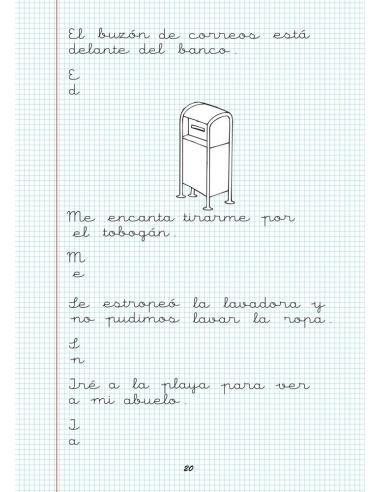 El buzón de correos está
delante del banco.
E
d
Me encanta tirarme por
el tobogán.
M
e
Se estropeó la lavadora y
no pudimos lavar la ropa.
S
n
Iré a la playa para ver
a mi abuelo.
I
a
20